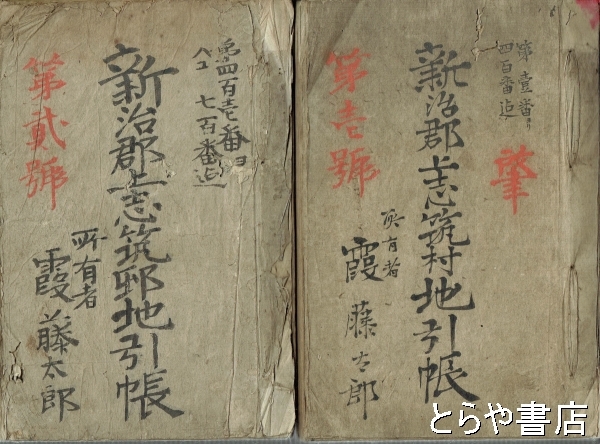 第壹番ゟ
四百番迠
肇
新治郡上志筑村地引帳
第壱號
所有者
霞藤太郎
第四百壱番ヨリ
七百番迠
新治郡上志筑邨地引帳
第貳號
所有者
霞藤太郎
とらや書店